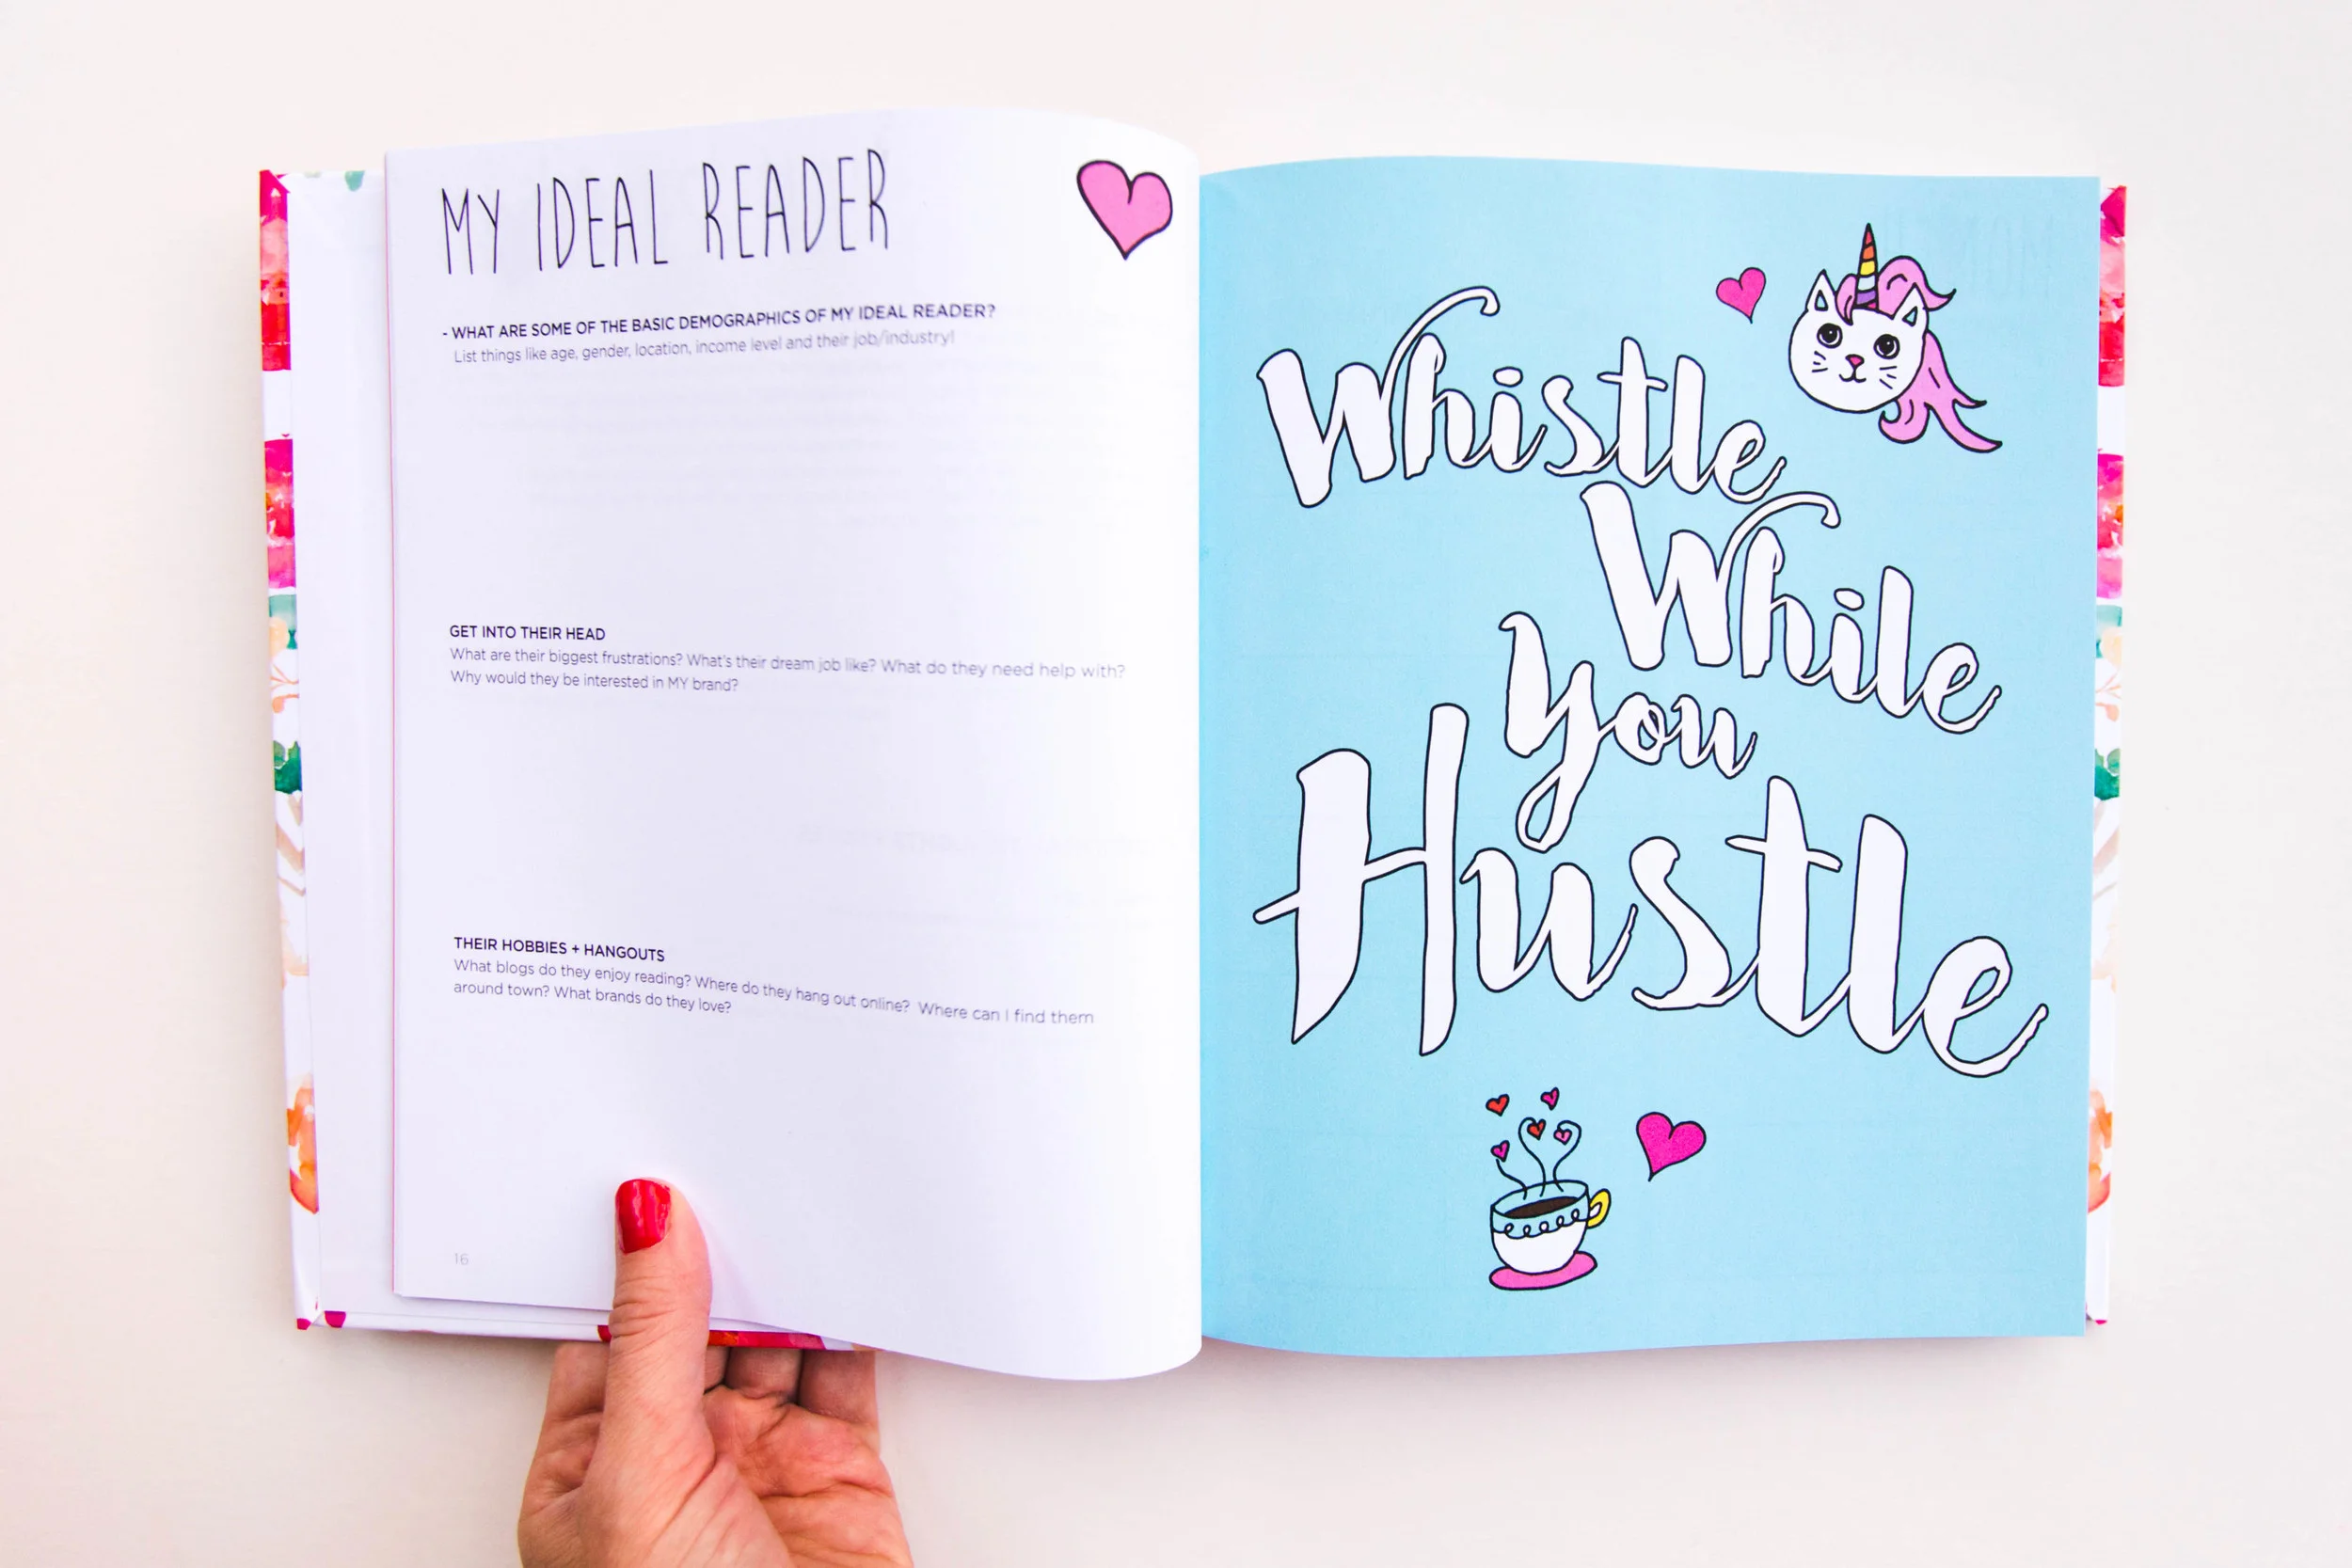 MY IDEAL READER
- WHAT ARE SOME OF THE BASIC DEMOGRAPHICS OF MY IDEAL READER?
List things like age, gender, location, income level and their job/industry!
GET INTO THEIR HEAD
What are their biggest frustrations? What's their dream job like? What do they need help with?
Why would they be interested in MY brand?
THEIR HOBBIES + HANGOUTS
What blogs do they enjoy reading? Where do they hang out online? Where can I find them
around town? What brands do they love?
16
Whistle
While
You
Hustle